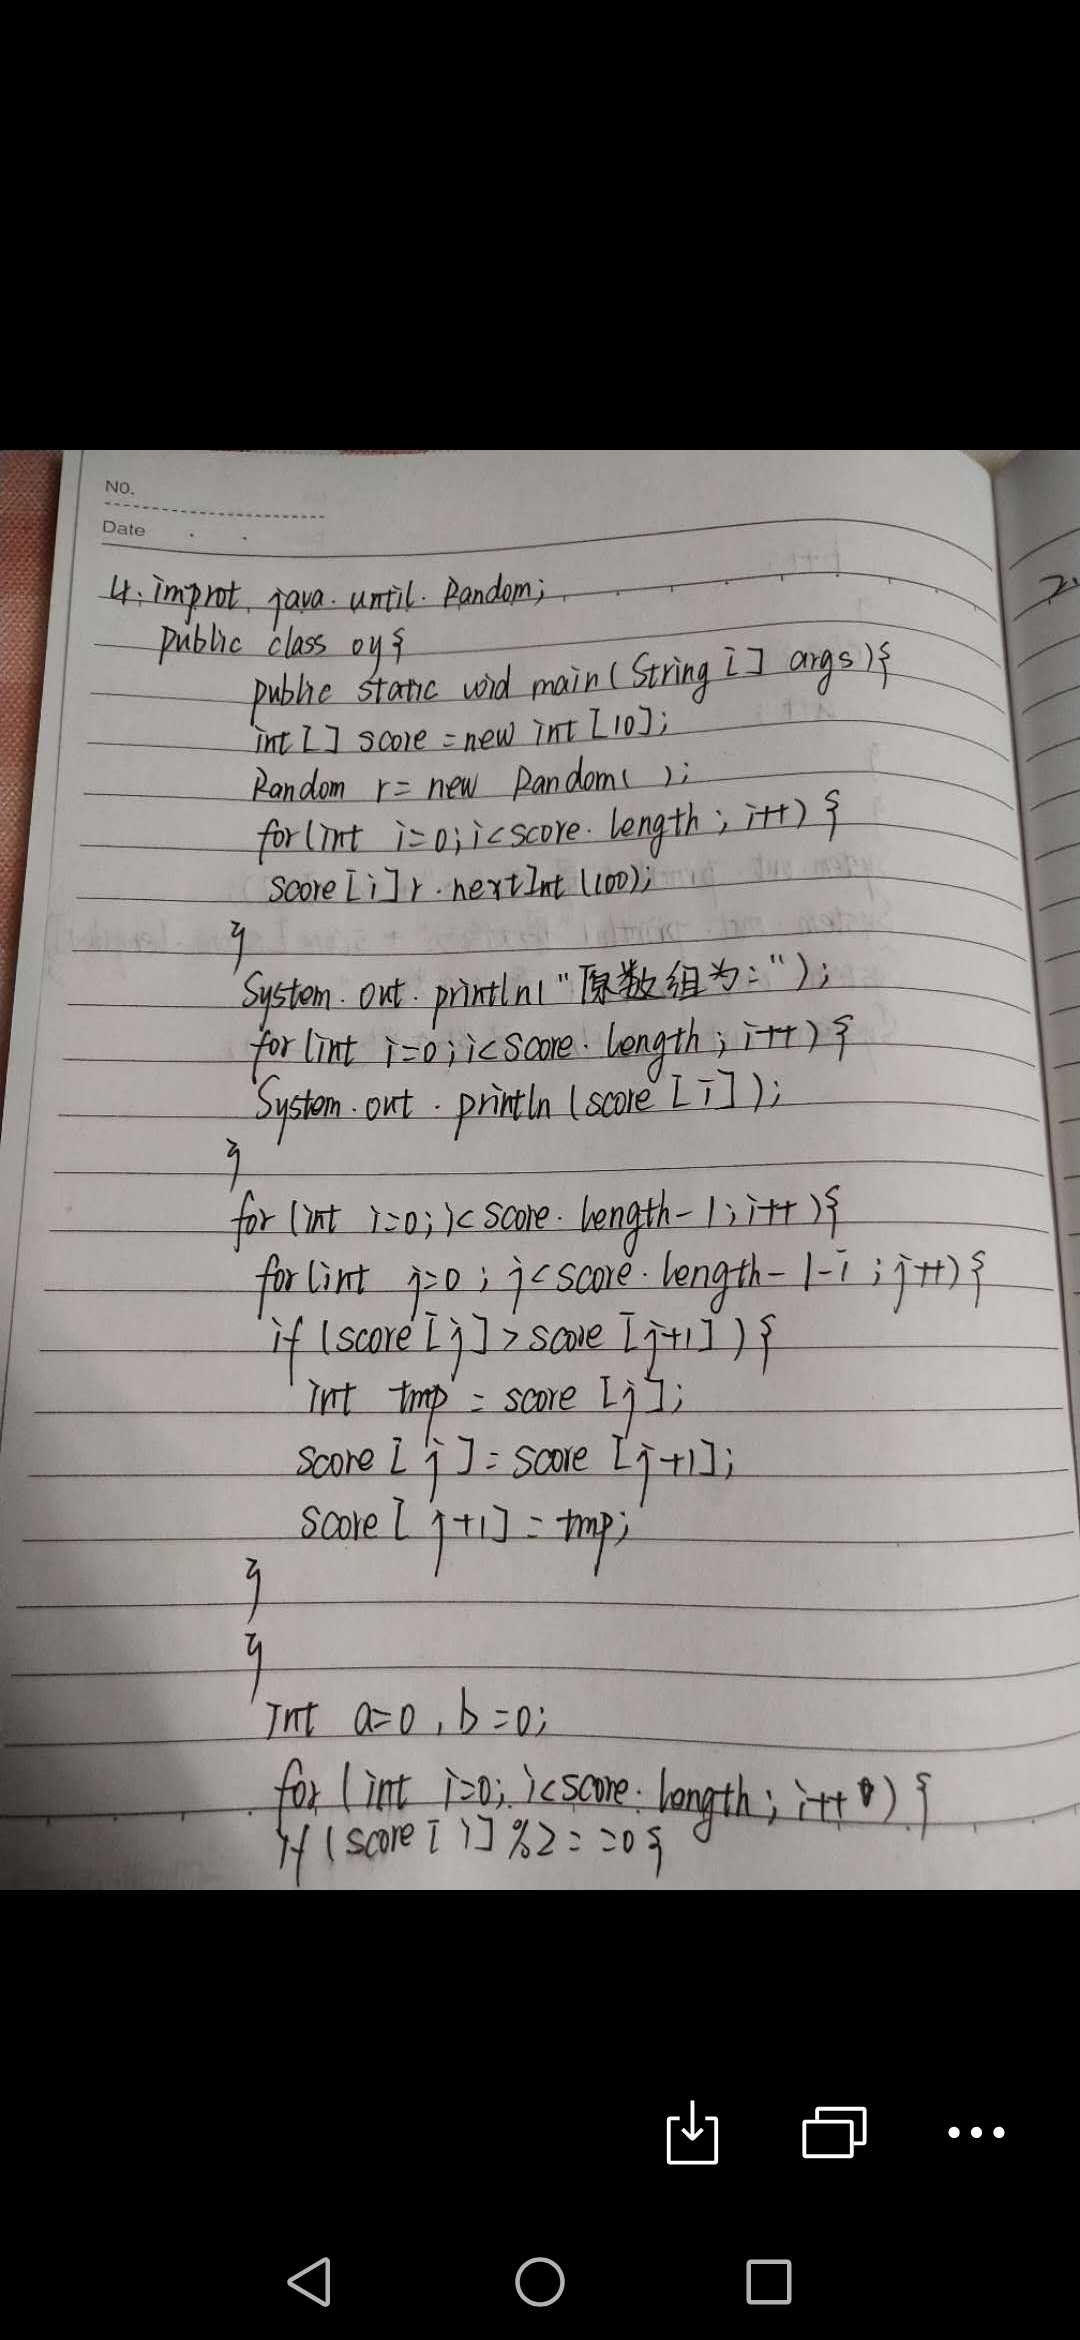 NO.
Date
4. improt. java. until. Random;
public class oy{
public static void main(String [] args){
int[] score = new int [10];
Random r= new Random( );
for(int i=0;i<score. length; i++) {
score[i]r.nextInt(100);
}
System. out. println("原数组为:");
for(int i=0;i<score. length; i++){
System. out. println(score[i]);
}
for(int i=0;i<score. length-1;i++){
for(int j=0; j<score. length-1-i; j++){
if(score[j]>score[j+1]){
int tmp = score[j];
score[j]=score[j+1];
score[j+1]=tmp;
}
}
int a=0,b=0;
for(int i=0; i<score. length; i++){
if(score[i]%2==0{
2.